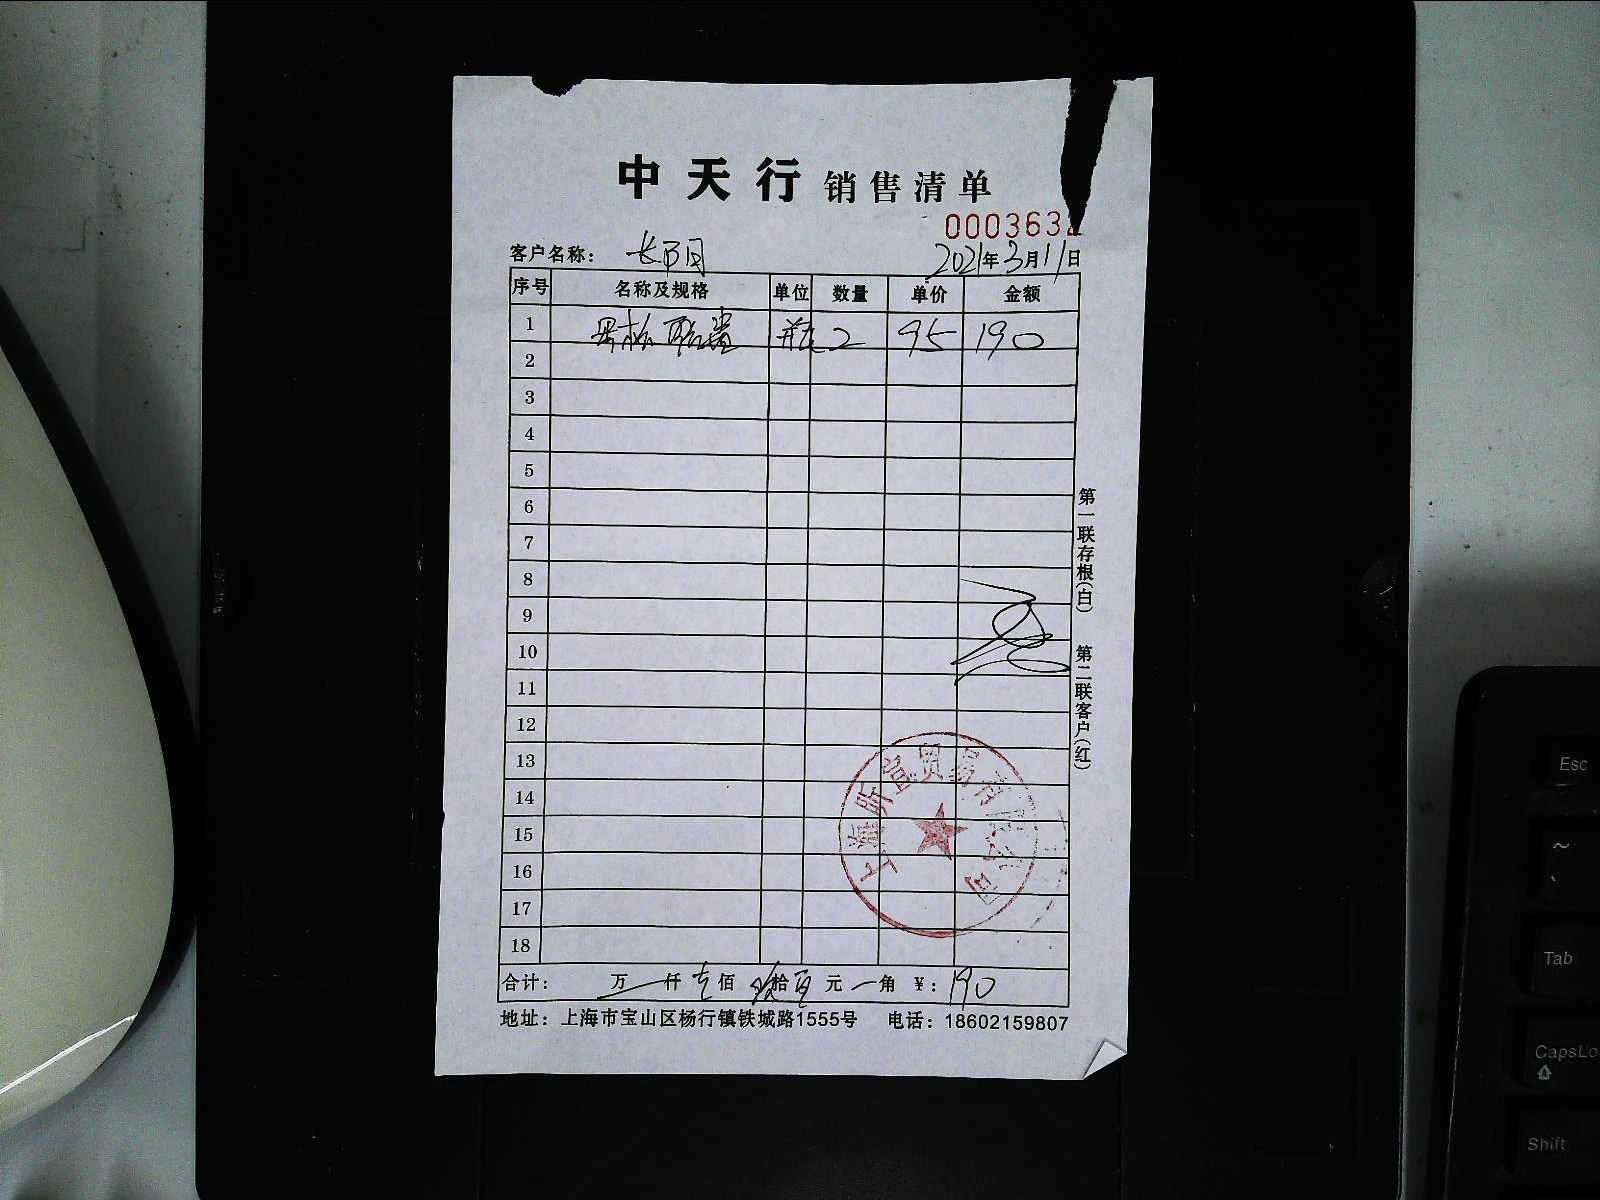 中天行 销售清单
000363
客户名称：
2021年3月11日
序号 名称及规格 单位 数量 单价 金额
1 瓶 2 95 190
2
3
4
5
6
7
8
9
10
11
12
13
14
15
16
17
18
合计： 万 仟 佰 拾 元 角 ￥：190
地址：上海市宝山区杨行镇铁城路1555号 电话：18602159807
第一联存根(白) 第二联客户(红)
上海昕宣贸易有限公司
Esc
~
Tab
CapsLo
Shift